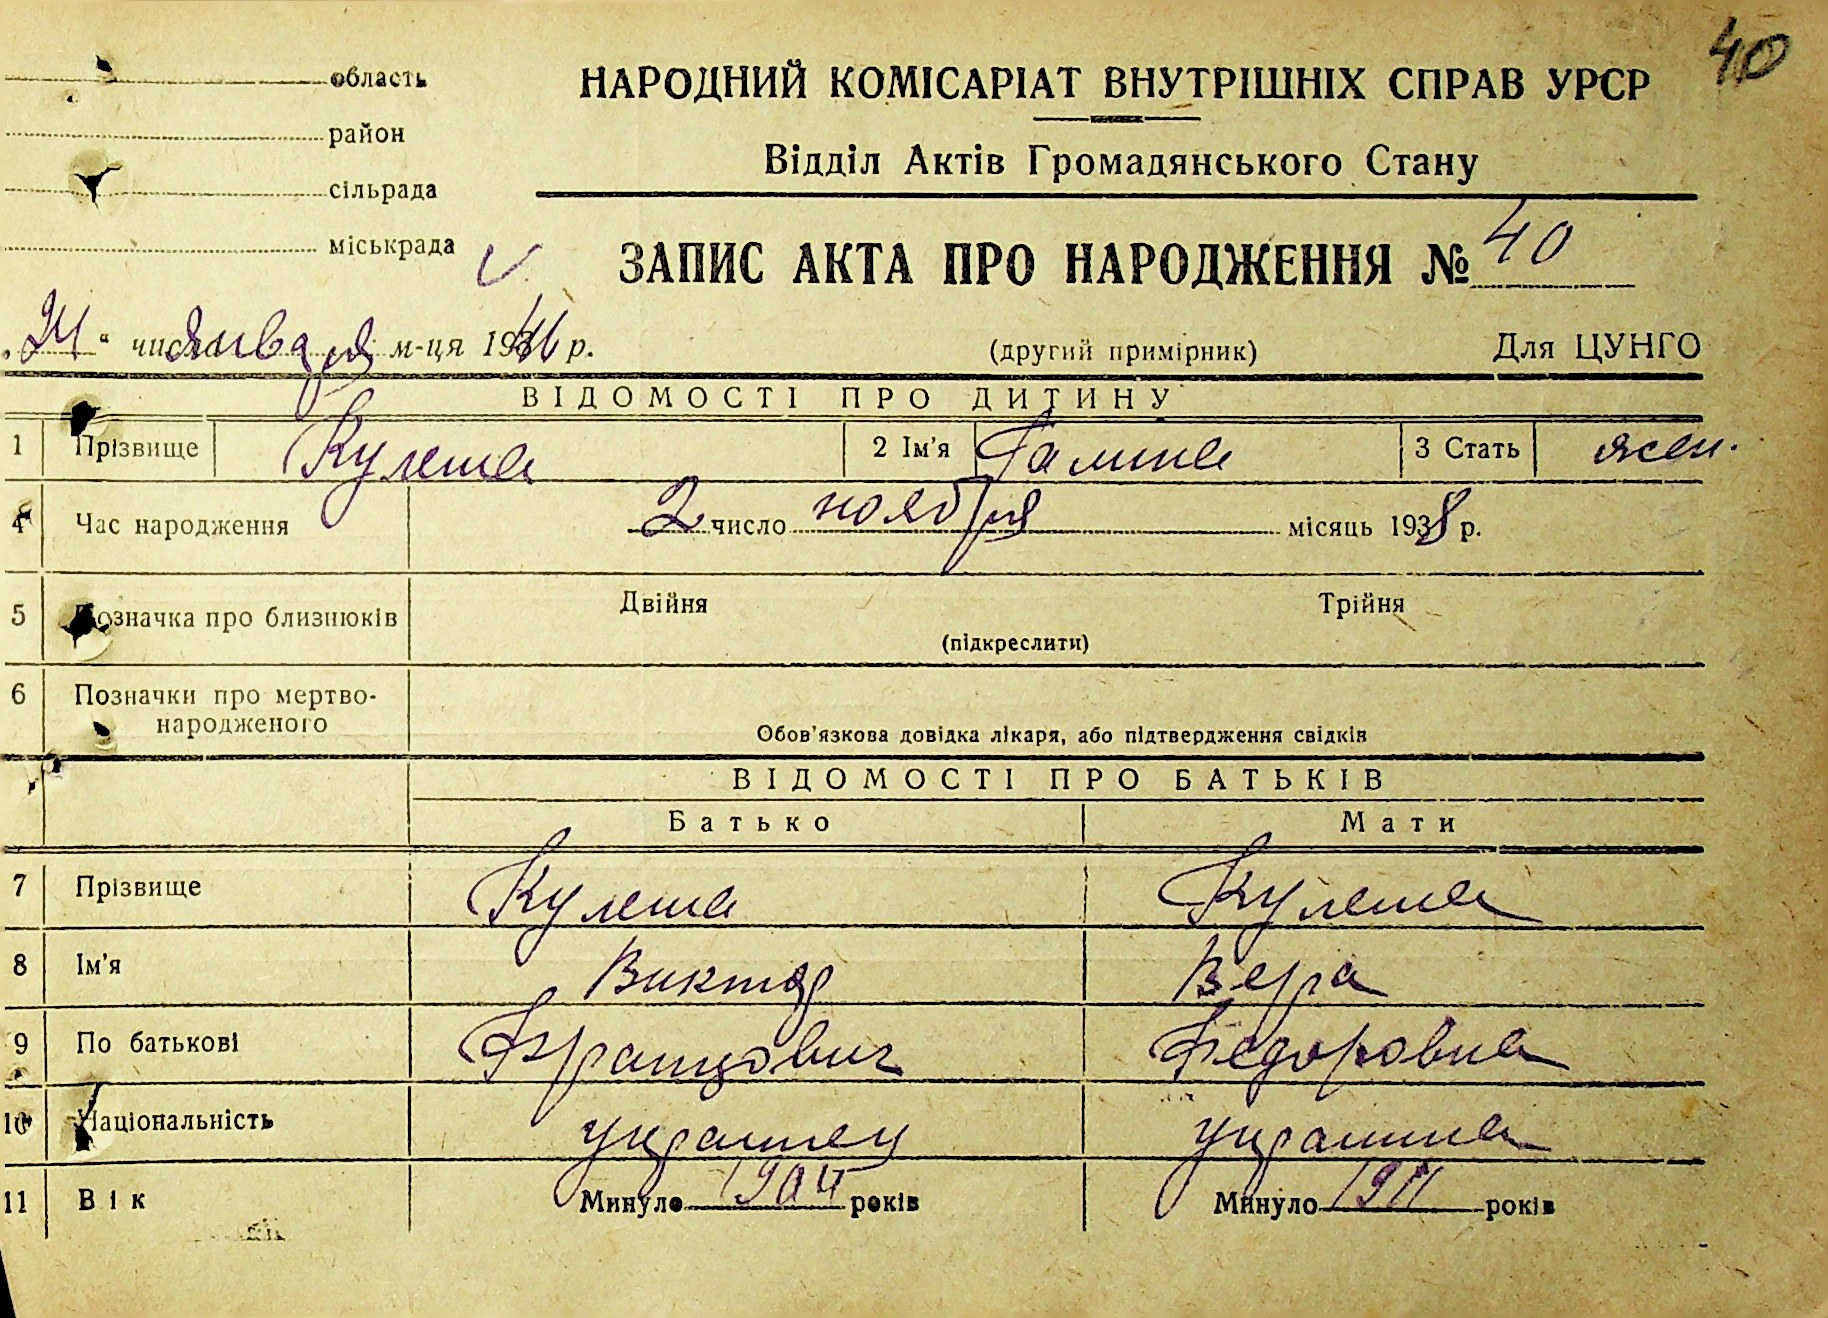 40
область
район
сільрада
міськрада
НАРОДНИЙ КОМІСАРІАТ ВНУТРІШНІХ СПРАВ УРСР
Відділ Актів Громадянського Стану
ЗАПИС АКТА ПРО НАРОДЖЕННЯ № 40
" числа января м-ця 19 р.
(другий примірник)
Для ЦУНГО
ВІДОМОСТІ ПРО ДИТИНУ
1 Прізвище Кулеша 2 Ім'я Галина 3 Стать жен.
4 Час народження 2 число ноября місяць 1938 р.
5 Позначка про близнюків Двійня Трійня
(підкреслити)
6 Позначки про мертво-
народженого
Обов'язкова довідка лікаря, або підтвердження свідків
ВІДОМОСТІ ПРО БАТЬКІВ
Батько Мати
7 Прізвище Кулеша Кулеша
8 Ім'я Виктор Вера
9 По батькові Францович Федоровна
10 Національність украинец украинка
11 Вік Минуло 1904 років Минуло 1911 років